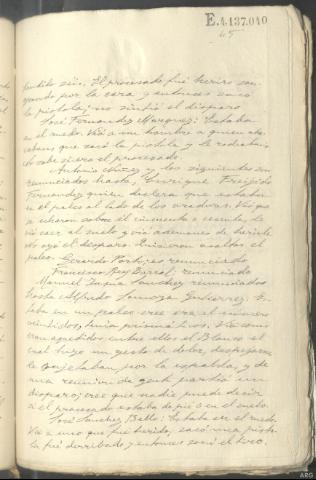 E.4.137.040
45
El procesado fué herido san-
grando por la cara y entonces sacó
la pistola; no sintió el disparo
José Fernandez Marquez: Estaba
en el ruedo. Vió a un hombre a quien ata-
caban que sacó la pistola y le
sabe si era el procesado.
Antonio Nuñez y los siguientes son
renunciados hasta, Enrique Freijido
Fernandez quien declara que estaba
en el al lado de los oradores. Vió que
se echaron sobre él cincuenta o sesenta, le
vió caer al suelo y vió ademanes de herirle
oyó el disparo. Quisieron asaltar el
palco. Gerardo renunciado
Francisco Rey renunciado
Manuel Sanchez renunciados
hasta Alfredo Somoza Gutierrez: Es-
taba en un palco cree era el número
veintidos, tenia prismáticos. Vió como
eran agredidos entre ellos el Blanco el
cual hizo un gesto de dolor, despues
le sujetaban por la espalda, y de
una reunión de gente partió un
disparo; cree que nadie puede decir
si el procesado estaba de pié o en el suelo.
José Sanchez Bello: Estaba en el ruedo.
Vió a uno que fué herido, sacó una pisto-
la fué derribado y entonces sonó el tiro.
ARG